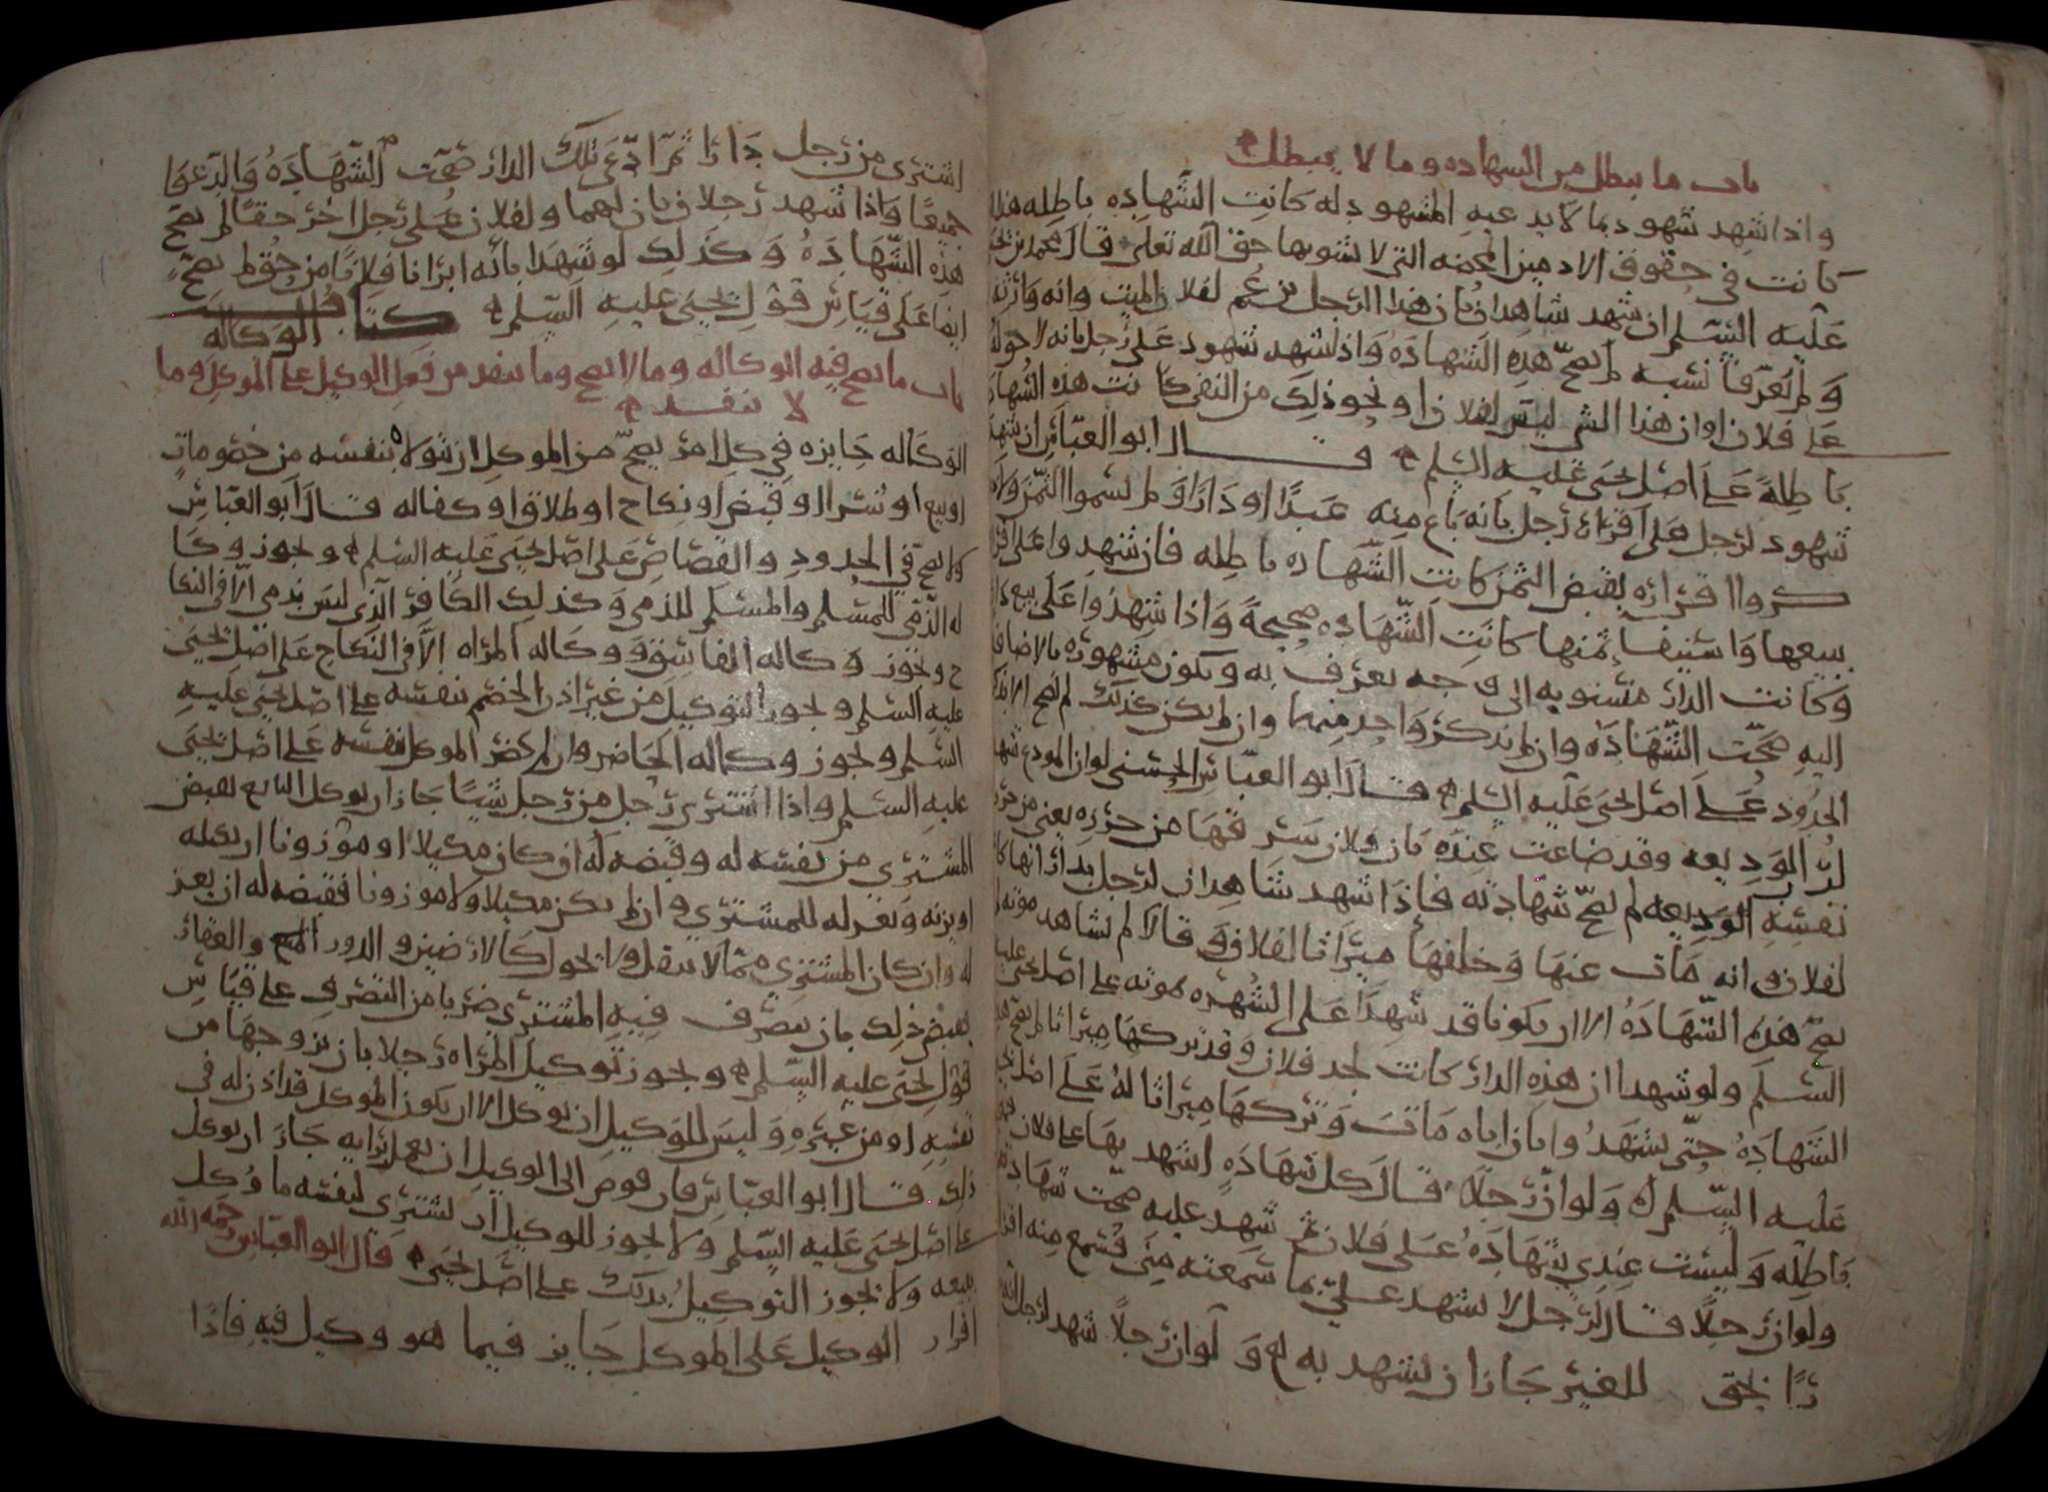 باب ما يبطل من الشهاده وما لا يبطل
واذا شهد شهود بما لا يدعيه المشهود له كانت الشهاده باطله هذا اذا
كانت في حقوق الادميين المحضه التي لا يشوبها حق الله تعلى قال محمد بن يحيى
عليه السلم ان شهد شاهدان بان هذا الرجل بن عم لفلان الميت وانه وارثه
ولم يعرفا نسبه لم يصح هذه الشهاده واذا شهد شهود على رجل بانه لا حق له
على فلان او ان هذا الشي ليس لفلان او نحو ذلك من النفي كانت هذه الشهاده
باطله على اصل يحيى عليه السلم قال ابو العباس ان شهد
شهود لرجل على اقرار رجل بانه باع منه عبدا او دارا ولم يسموا الثمن ولا
ذكروا اقراره بقبض الثمن كانت الشهاده باطله فان شهدوا على اقراره
ببيعها واستيفا ثمنها كانت الشهاده صحيحة واذا شهدوا على بيع دار
وكانت الدار منسوبه الى وجه يعرف به ويكون مشهوره بالاضافه
اليه صحت الشهاده وان لم يذكر واحد منهما وان لم يكن كذلك لم يصح الا بذكر
الحدود على اصل يحيى عليه السلم قال ابو العباس الحسني لو ان المودع شهد
لرب الوديعه وقد ضاعت عنده بان فلان سرقها من حرزه يعني من حرز
نفسه الوديعه لم يصح شهادته فاذا شهد شاهدان لرجل بدار انها كانت
لفلان وانه مات عنها وخلفها ميراثا لفلان وقالا لم نشاهد موته لم
يصح هذه الشهاده الا ان يكونا قد شهدا على الشهره بموته على اصل يحيى عليه
السلم ولو شهدا ان هذه الدار كانت لجد فلان وقد تركها ميراثا لم يصح هذه
الشهاده حتى يشهدوا بان اباه مات وتركها ميراثا له على اصل يحيى
عليه السلم ولو ان رجلا قال كل شهاده اشهد بها على فلان فهي
باطله وليست عندي شهاده على فلان ثم شهد عليه صحت شهادته
ولو ان رجلا قال لرجل لا تشهد علي بما سمعته مني فسمع منه اقرا
را بحق للغير جاز ان يشهد به له ولو ان رجلا شهد لرجل انه
اشترى من رجل دارا ثم ادعى تلك الدار صحت الشهاده والدعوا
جميعا واذا شهد رجلان بان لهما ولفلان على رجل اخر حقا لم يصح
هذه الشهاده وكذلك لو شهدا بانه ابرانا وفلانا من حق لم يصح
ايضا على قياس قول يحيى عليه السلم كتاب الوكاله
باب ما يصح فيه الوكاله وما لا يصح وما ينفد من فعل الوكيل على الموكل وما
لا ينفد
الوكاله جايزه في كل امر يصح من الموكل ان يتولاه بنفسه من خصومات
او بيع او شرا او قبض او نكاح او طلاق او كفاله قال ابو العباس
ولا يصح في الحدود والقصاص على اصل يحيى عليه السلم ويجوز وكا
له الذمي للمسلم والمسلم للذمي وكذلك الكافر الذي ليس بذمي الا في النكا
ح ويجوز وكاله الفاسق ووكاله المراه الا في النكاح على اصل يحيى
عليه السلم ويجوز التوكيل من غير اذن الخصم بنفسه على اصل يحيى عليه
السلم ويجوز وكاله الحاضر وان لم يحضر الموكل بنفسه على اصل يحيى
عليه السلم واذا اشترى رجل من رجل شيئا جاز ان يوكل البايع بقبض
المشترى من نفسه له وقبضه له ان كان مكيلا او موزونا ان يكيله
او يزنه ويعزله للمشتري وان لم يكن مكيلا ولا موزونا فقبضه له ان يعز
له وان كان المشترى مما لا ينقل ولا يحول كالارضين والدور والعقار
بقبض ذلك بان يتصرف فيه المشتري ضربا من التصرف على قياس
قول يحيى عليه السلم ويجوز توكيل المراه رجلا بان يزوجها من
نفسه او من غيره وليس للوكيل ان يوكل الا ان يكون الموكل قد اذن له في
ذلك قال ابو العباس فان فوض الى الوكيل ان يعمل برايه جاز ان يوكل
على اصل يحيى عليه السلم ولا يجوز للوكيل ان يشتري لنفسه ما وكل
ببيعه ولا يجوز التوكيل بذلك على اصل يحيى قال ابو العباس رحمه الله
اقرار الوكيل على الموكل جايز فيما هو وكيل فيه فاذا